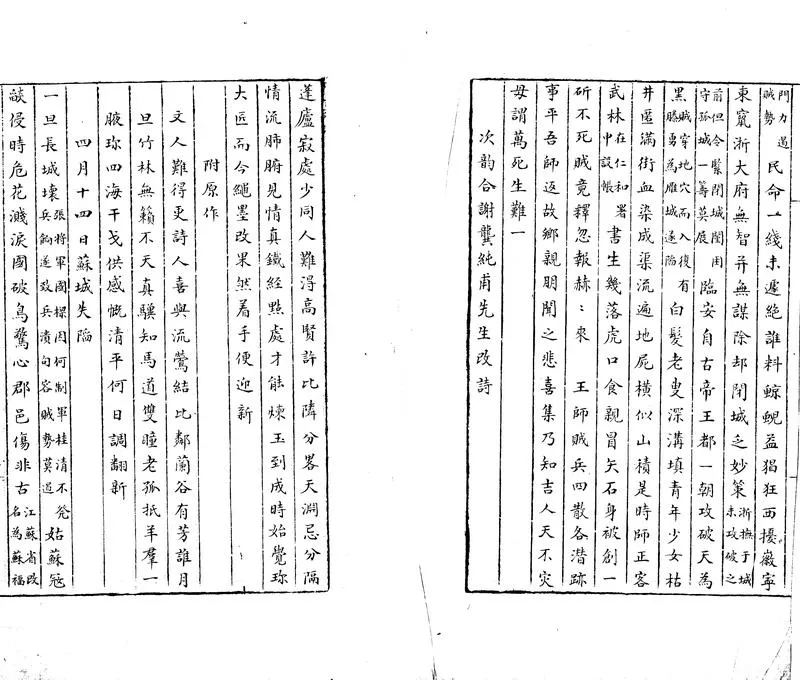 門力遏賊勢民命一綫未遽绝誰料鯨鯢益猖狂西擾徽寧
東竄浙大府無智并無謀除却閉城乏妙策浙撫于城未攻破之
前但令緊閉城闉用守孤城一籌莫展臨安自古帝王都一朝攻破天為
黑賊穿地穴而入復有勝勇為雁城遂陷白髮老叟深溝填青年少女枯
井匿滿街血染成渠流遍地屍橫似山積是時師正客
武林在仁和署中設帳書生幾落虎口食親冒矢石身被創一
斫不死賊竟釋忽報赫〻來王師賊兵四散各潛跡
事平吾師返故鄉親朋聞之悲喜集乃知吉人天不灾
毋謂萬死生難一
次韵合謝龔純甫先生改詩
蓬廬寂處少同人難得高賢許比隣分畧天淵忌分隔
情流肺腑見情真鐵經㸃處才能煉玉到成時始覺珎
大匠而今繩墨改果然着手便迎新
附原作
文人難得更詩人喜與流鶯結比鄰蘭谷有芳誰月
旦竹林無籟不天真驥知馬道雙瞳老孤抵羊羣一
腋珎四海干戈供感慨清平何日調翻新
四月十四日蘇城失陷
一旦長城壞張將軍國樑因何制軍桂清不發兵餉遂致兵潰句容賊勢莫遏姑蘇寇
燄侵時危花濺淚國破鳥驚心郡邑傷非古江蘇省改名為蘇福